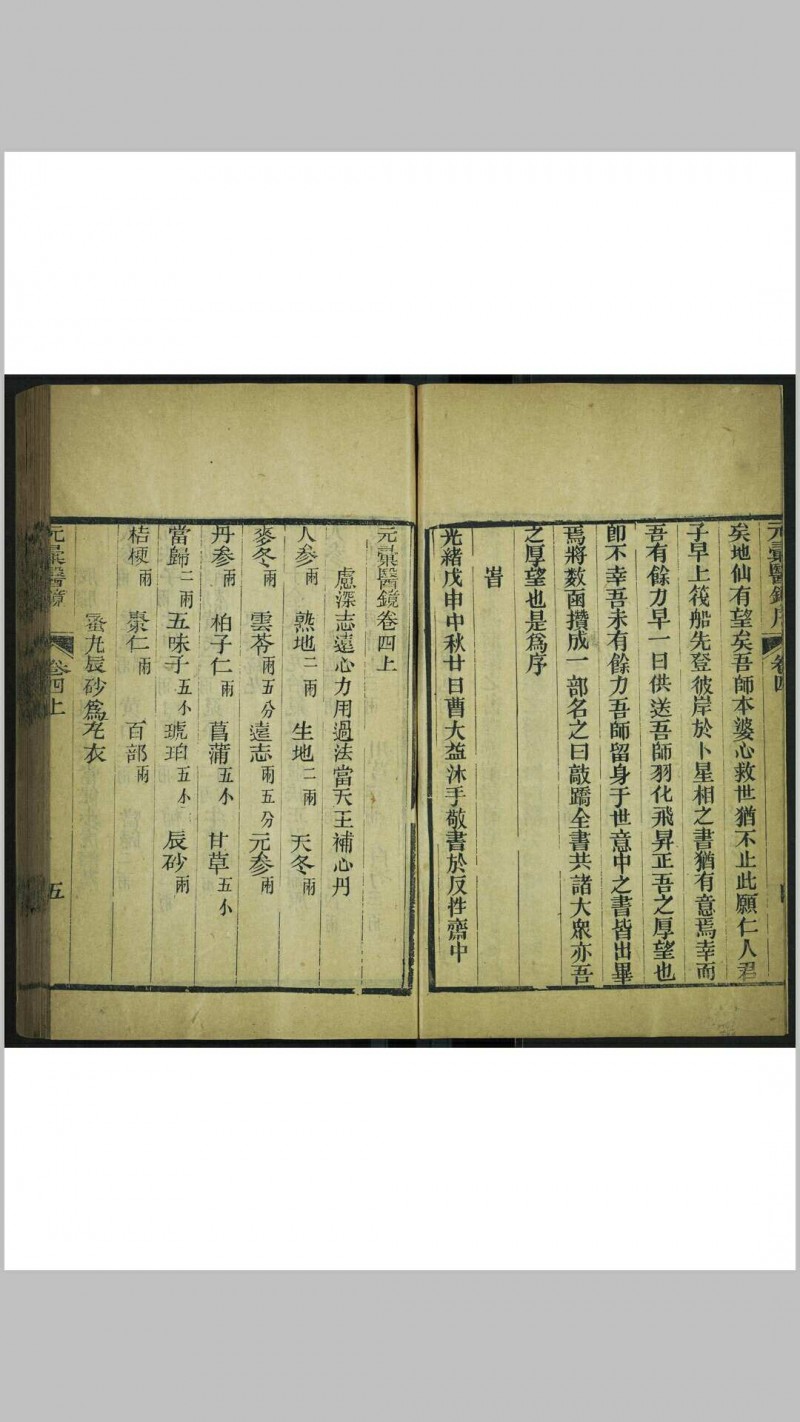 元彙醫鏡序 卷四
矣地仙有望矣吾師本婆心救世猶不止此願仁人君
子早上筏船先登彼岸於卜星相之書猶有意焉幸而
吾有餘力早一日供送吾師羽化飛昇正吾之厚望也
卽不幸吾未有餘力吾師留身于世意中之書皆出畢
焉將數函攢成一部名之曰敲蹻全書共諸大衆亦吾
之厚望也是爲序
旹
光緒戊申中秋廿日曹大益沐手敬書於反性齋中
元彙醫鏡卷四上
慮深志遠心力用過法當天王補心丹
人參兩 熟地二兩 生地二兩 天冬兩
麥冬兩 雲苓兩五分 遠志兩五分 元參兩
丹參兩 柏子仁兩 菖蒲五小 甘草五小
當歸二兩 五味子五小 琥珀五小 辰砂兩
桔梗兩 棗仁兩 百部兩
蜜丸辰砂爲衣
元彙醫鏡 卷四上 五